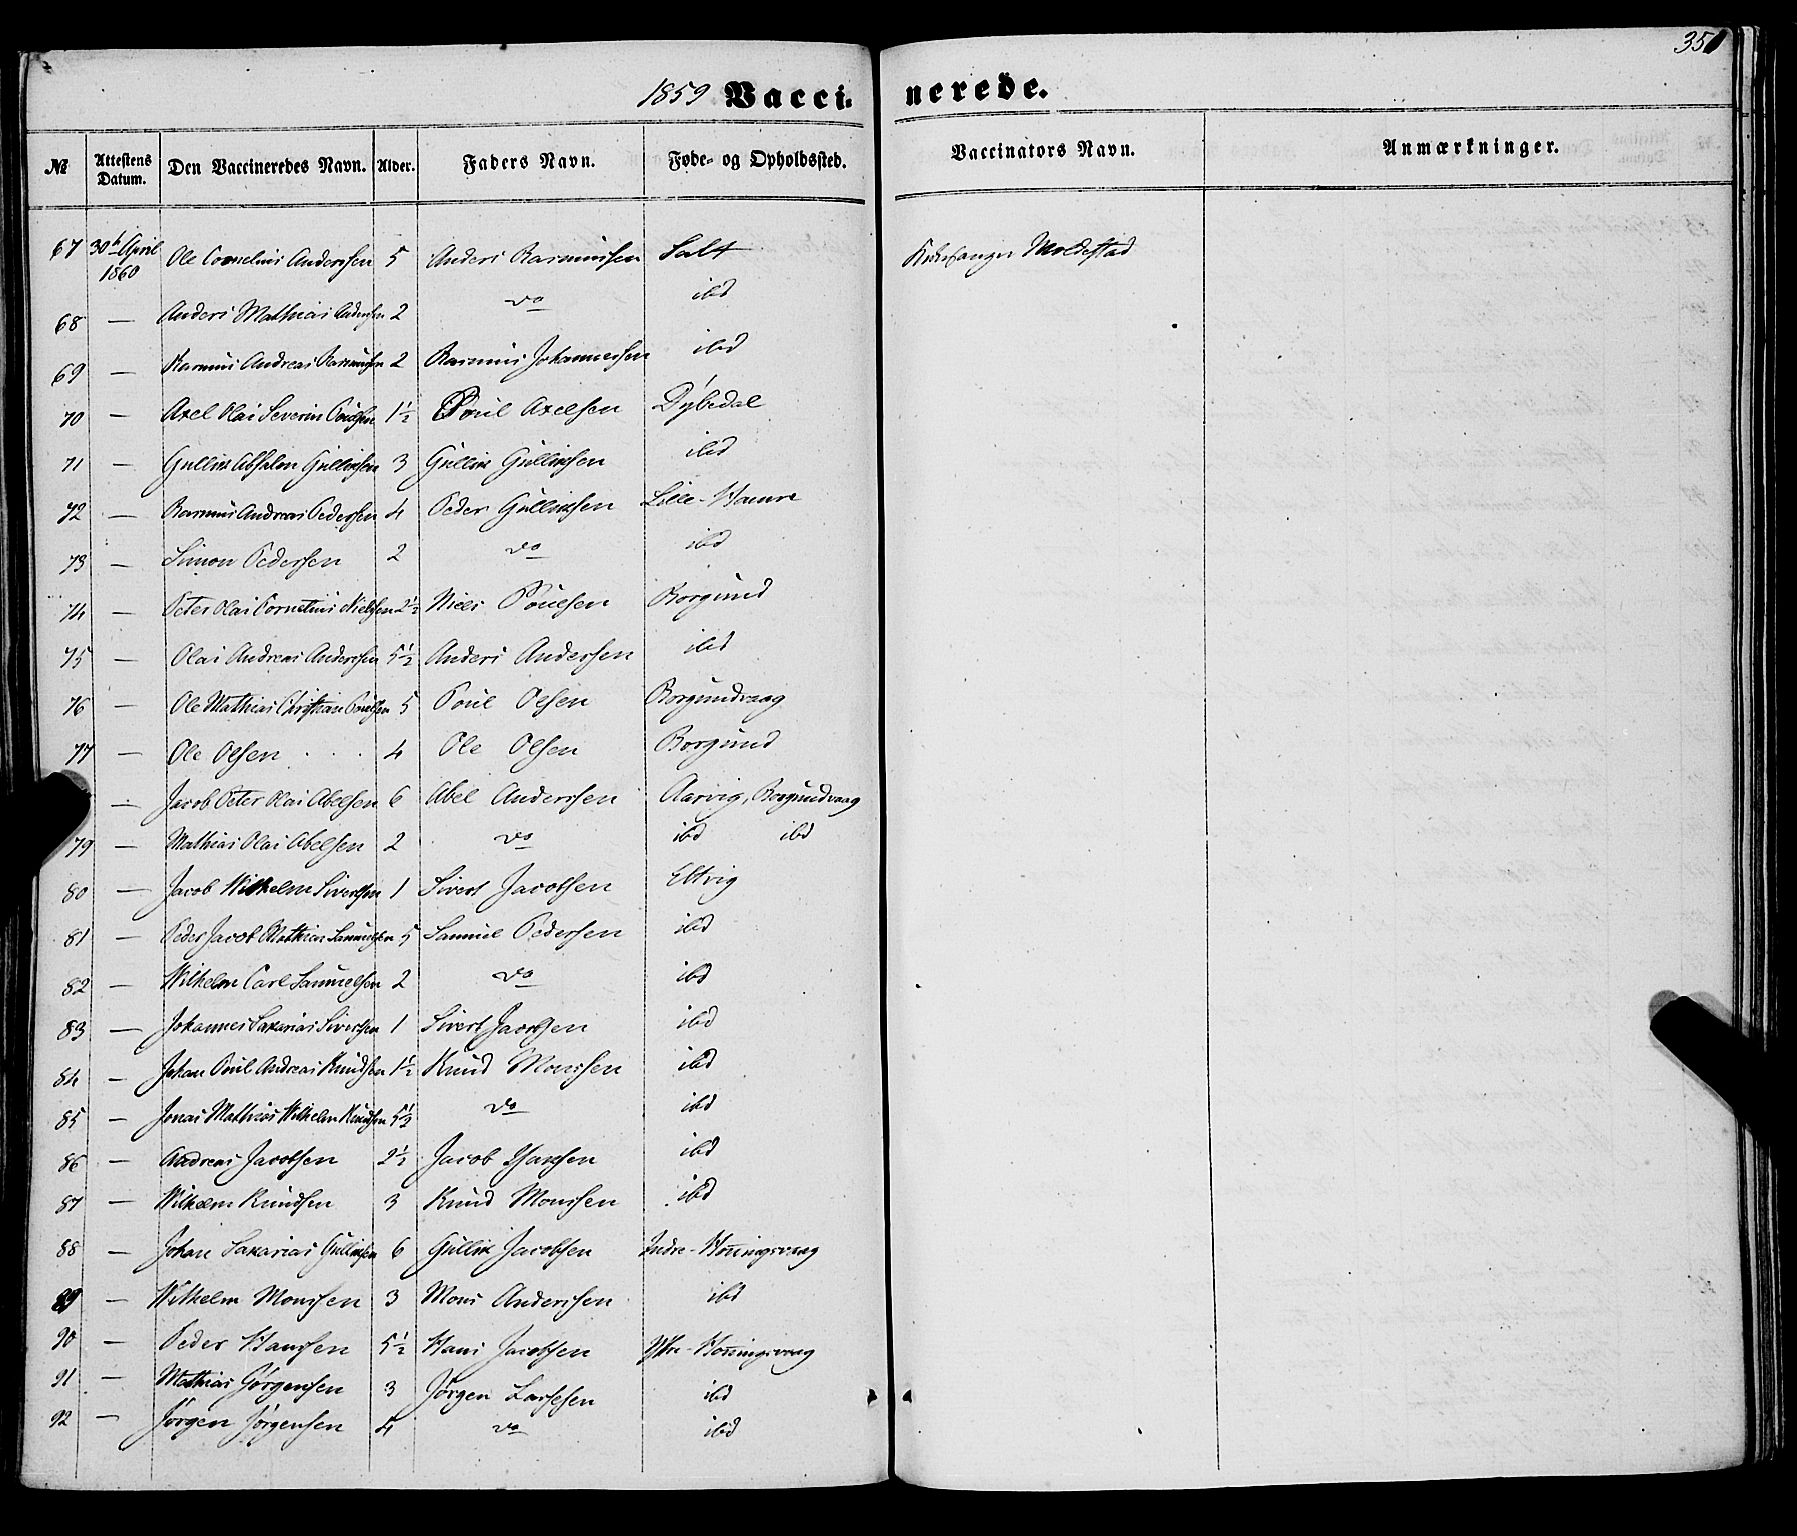 351
1859 Vacci-nerede.
№ Attestens Datum. Den Vaccineredes Navn. Alder. Faders Navn. Føde- og Opholdssted. Vaccinators Navn. Anmærkninger.
67 30te April 1860 Ole Cornelius Anderssen 5 Anders Rasmussen Salt Kirkesanger Moldestad
68 — Anders Mathias Anderssen 2 do ibd
69 — Rasmus Andreas Rasmussen 2 Rasmus Johannessen ibd
70 — Axel Olai Severin Poulsen 1½ Poul Axelsen Dybedal
71 — Gullik Absalon Gulliksen 3 Gullik Gulliksen ibd
72 — Rasmus Andreas Pedersen 4 Peder Gulliksen Lille-Hamre
73 — Simon Pedersen 2 do ibd
74 — Peter Olai Cornelius Nielsen 2½ Niels Poulsen Borgund
75 — Olai Andreas Anderssen 5½ Anders Andersen ibd
76 — Ole Mathias Christian Poulsen 5 Poul Olsen Borgundvaag
77 — Ole Olsen 4 Ole Olsen Borgund
— Jacob Peter Olai Abelsen 6 Abel Anderssen Aarvig, Borgundvaag
79 — Mathias Olai Abelsen 2 do ibd ibd
80 — Jacob Wilhelm Sivertsen 1 Sivert Jacobsen Eltvig
81 — Peder Jacob Mathias Samuelsen 5 Samuel Pedersen ibd
82 — Wilhelm Carl Samuelsen 2 do ibd
83 — Johannes Sakarias Sivertsen 1 Sivert Jacobsen ibd
84 — Johan Poul Andreas Knudsen 1½ Knud Monssen ibd
85 — Jonas Mathias Wilhelm Knudsen 5½ do ibd
86 — Andreas Jacobsen 2½ Jacob ibd
87 — Wilhelm Knudsen 3 Knud Monssen ibd
88 — Johan Sakarias Gulliksen 6 Gullik Jacobsen Indre-Honningsvaag
89 — Wilhelm Monssen 3 Mons Anderssen ibd
90 — Peder Hanssen 5½ Hans Jacobsen Ytre-Honningsvaag
91 — Mathias Jørgensen 3 Jørgen Larssen ibd
92 — Jørgen Jørgensen 4 do ibd